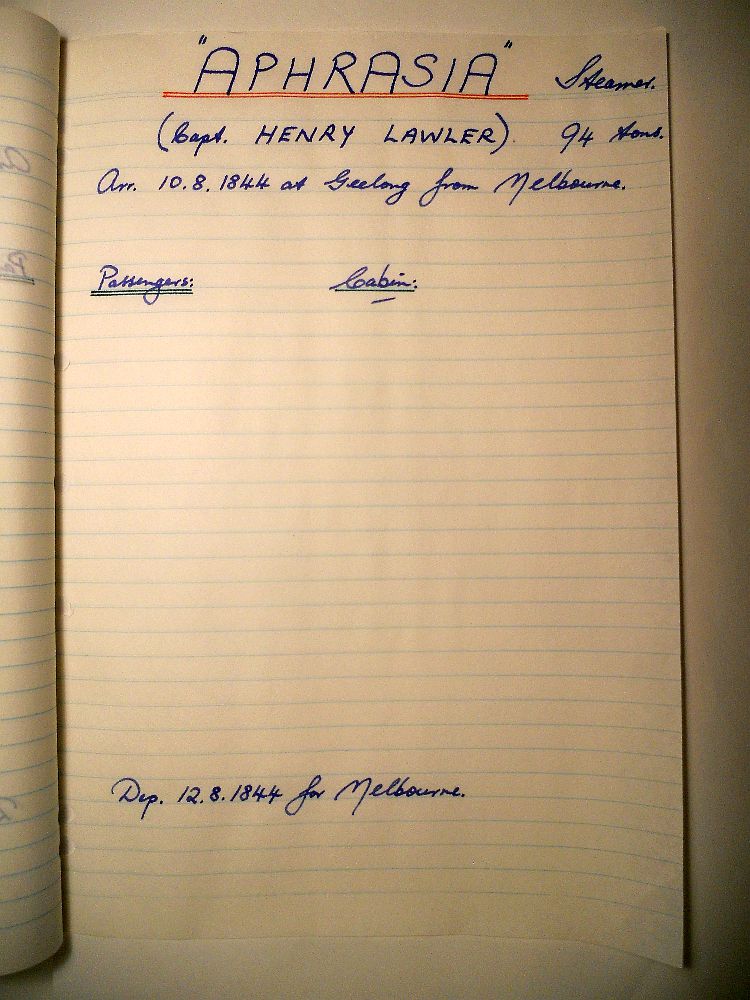 "APHRASIA" Steamer.
(Capt. HENRY LAWLER). 94 tons.
Arr. 10.8.1844 at Geelong from Melbourne.
Passengers: Cabin:
Dep. 12.8.1844 for Melbourne.